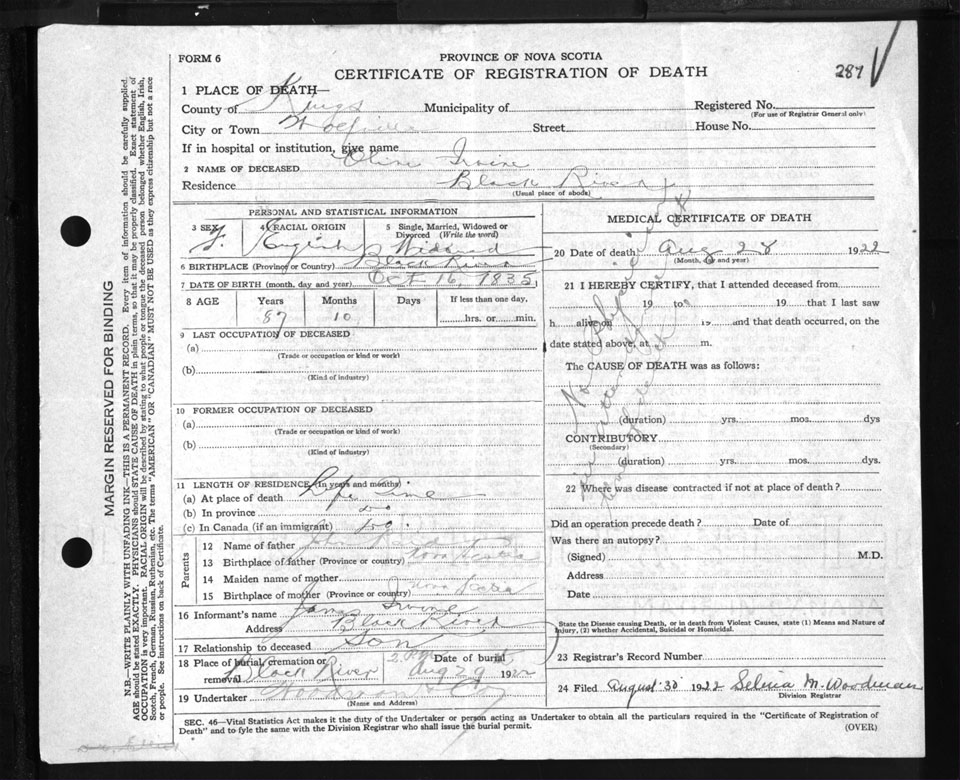 FORM 6
PROVINCE OF NOVA SCOTIA
CERTIFICATE OF REGISTRATION OF DEATH
287
1 PLACE OF DEATH—
County of Kings Municipality of Registered No.
(For use of Registrar General only)
City or Town Wolfville Street House No.
If in hospital or institution, give name
2 NAME OF DECEASED Olive Irvine
Residence Black River
(Usual place of abode)
PERSONAL AND STATISTICAL INFORMATION
3 SEX F. 4 RACIAL ORIGIN English 5 Single, Married, Widowed or Divorced (Write the word) Widowed
6 BIRTHPLACE (Province or Country) Black River
7 DATE OF BIRTH (month, day and year) Oct 16, 1835
8 AGE Years Months Days If less than one day,
87 10 hrs. or min.
9 LAST OCCUPATION OF DECEASED
(a)
(Trade or occupation or kind or work)
(b)
(Kind of industry)
10 FORMER OCCUPATION OF DECEASED
(a)
(Trade or occupation or kind or work)
(b)
(Kind of industry)
11 LENGTH OF RESIDENCE (In years and months)
(a) At place of death Life time
(b) In province do
(c) In Canada (if an immigrant) do.
Parents
12 Name of father John
13 Birthplace of father (Province or country) Nova Scotia
14 Maiden name of mother
15 Birthplace of mother (Province or country) Nova Scotia
16 Informant's name James Irvine
Address Black River
17 Relationship to deceased Son
18 Place of burial, cremation or removal Black River Date of burial Aug 29 1922
19 Undertaker Woodman & Co
(Name and Address)
MEDICAL CERTIFICATE OF DEATH
20 Date of death Aug 28 1922
(Month, day and year)
21 I HEREBY CERTIFY, that I attended deceased from
19 to 19 that I last saw
h alive on 19 and that death occurred, on the
date stated above, at m.
The CAUSE OF DEATH was as follows:
No Physician
(duration) yrs. mos. dys
CONTRIBUTORY
(Secondary)
(duration) yrs. mos. dys.
22 Where was disease contracted if not at place of death?
Did an operation precede death? Date of
Was there an autopsy?
(Signed) M.D.
Address
Date
State the Disease causing Death, or in death from Violent Causes, state (1) Means and Nature of
Injury, (2) whether Accidental, Suicidal or Homicidal.
23 Registrar's Record Number
24 Filed August 30 1922 Selina M. Woodman
Division Registrar
SEC. 46—Vital Statistics Act makes it the duty of the Undertaker or person acting as Undertaker to obtain all the particulars required in the "Certificate of Registration of
Death" and to fyle the same with the Division Registrar who shall issue the burial permit.
(OVER)
MARGIN RESERVED FOR BINDING
N.B.—WRITE PLAINLY WITH UNFADING INK—THIS IS A PERMANENT RECORD. Every item of information should be carefully supplied.
AGE should be stated EXACTLY. PHYSICIANS should STATE CAUSE OF DEATH in plain terms, so that it may be properly classified. Exact statement of
OCCUPATION is very important. RACIAL ORIGIN will be described by stating to what people or tongue the deceased person belonged whether English, Irish,
Scotch, French, German, Russian, Ruthenian, etc. The terms "AMERICAN" OR "CANADIAN" MUST NOT BE USED as they express citizenship but not a race
or people. See instructions on back of Certificate.